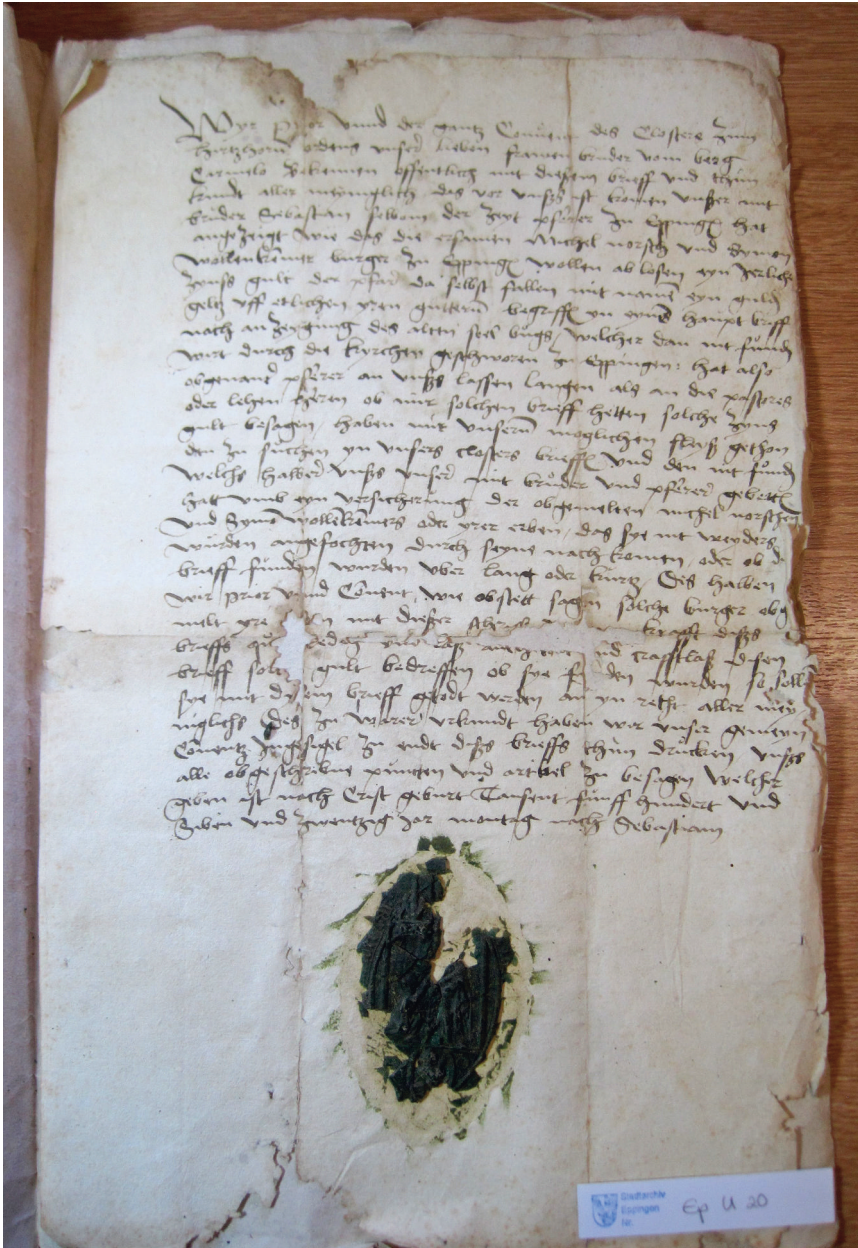 Wyr Prior unnd der gantz Convent des Closters zum
hirtzhorn ordens unser lieben frawen bruder vom berg
Carmelo Bekennen offentlich mit diesem brieff und thun
kundt aller meniglich das vor unsz ist komen unszer mit
bruder Sebastian der zeyt pfarer zu Epping hat
angezeigt wie das die ersamen Michel norsch und Symon
wollenkremer burger zu Epping wollen ab losen eyn Jerliche
zynsz gult der pfar da selbst fallen mit namen eyn guld
geltz uff etlichen yren guttern begriff yn eynem haupt brieff
nach anzeygung des alten seel buchs, welcher dan nit funden
wirt durch die kyrchen geschworen zu Eppingen: hat also
obgenant pfarer an unsz lassen langen als an die pastores
oder lehen heren ob mir solchen brieff hetten solche zyns
gult besagen, haben mir unserm moglichen flysz gethon
den zu suchen yn unsers closters brieff und den nit funden
Welchs halber unsz unser mit bruder und pfarer gebetten
hatt umb eyn versicherung der obgemelten michel norschen
und Symon wollekremers oder yrer erben, das sye nit weyders
wurden angefochten durch seyne nach komen, oder ob d
brieff funden wurden uber lang oder kurtz, Des halben
wir prior unnd Convent, wie obstett sagen solche burger obg
melt yre mit dieszer krafft diszes
brieffs und crafftlosz diesen
brieff gult bedreffen ob sye funden wurden so soll
sye mit dysem brieff gedot werden an yn recht aller mey
niglichs des zu warer urkundt haben wir unser gemeyn
Conventz Ingesigel zu endt disz brieffs thun drucken unsz
alle obgeschribne puncten und artickel zu besagen Welcher
geben ist nach Crist geburt Tausent funff hundert und
Siben und zwentzig Jar montag nach Sebastiani
Stadtarchiv
Eppingen
Nr.
Ep U 20